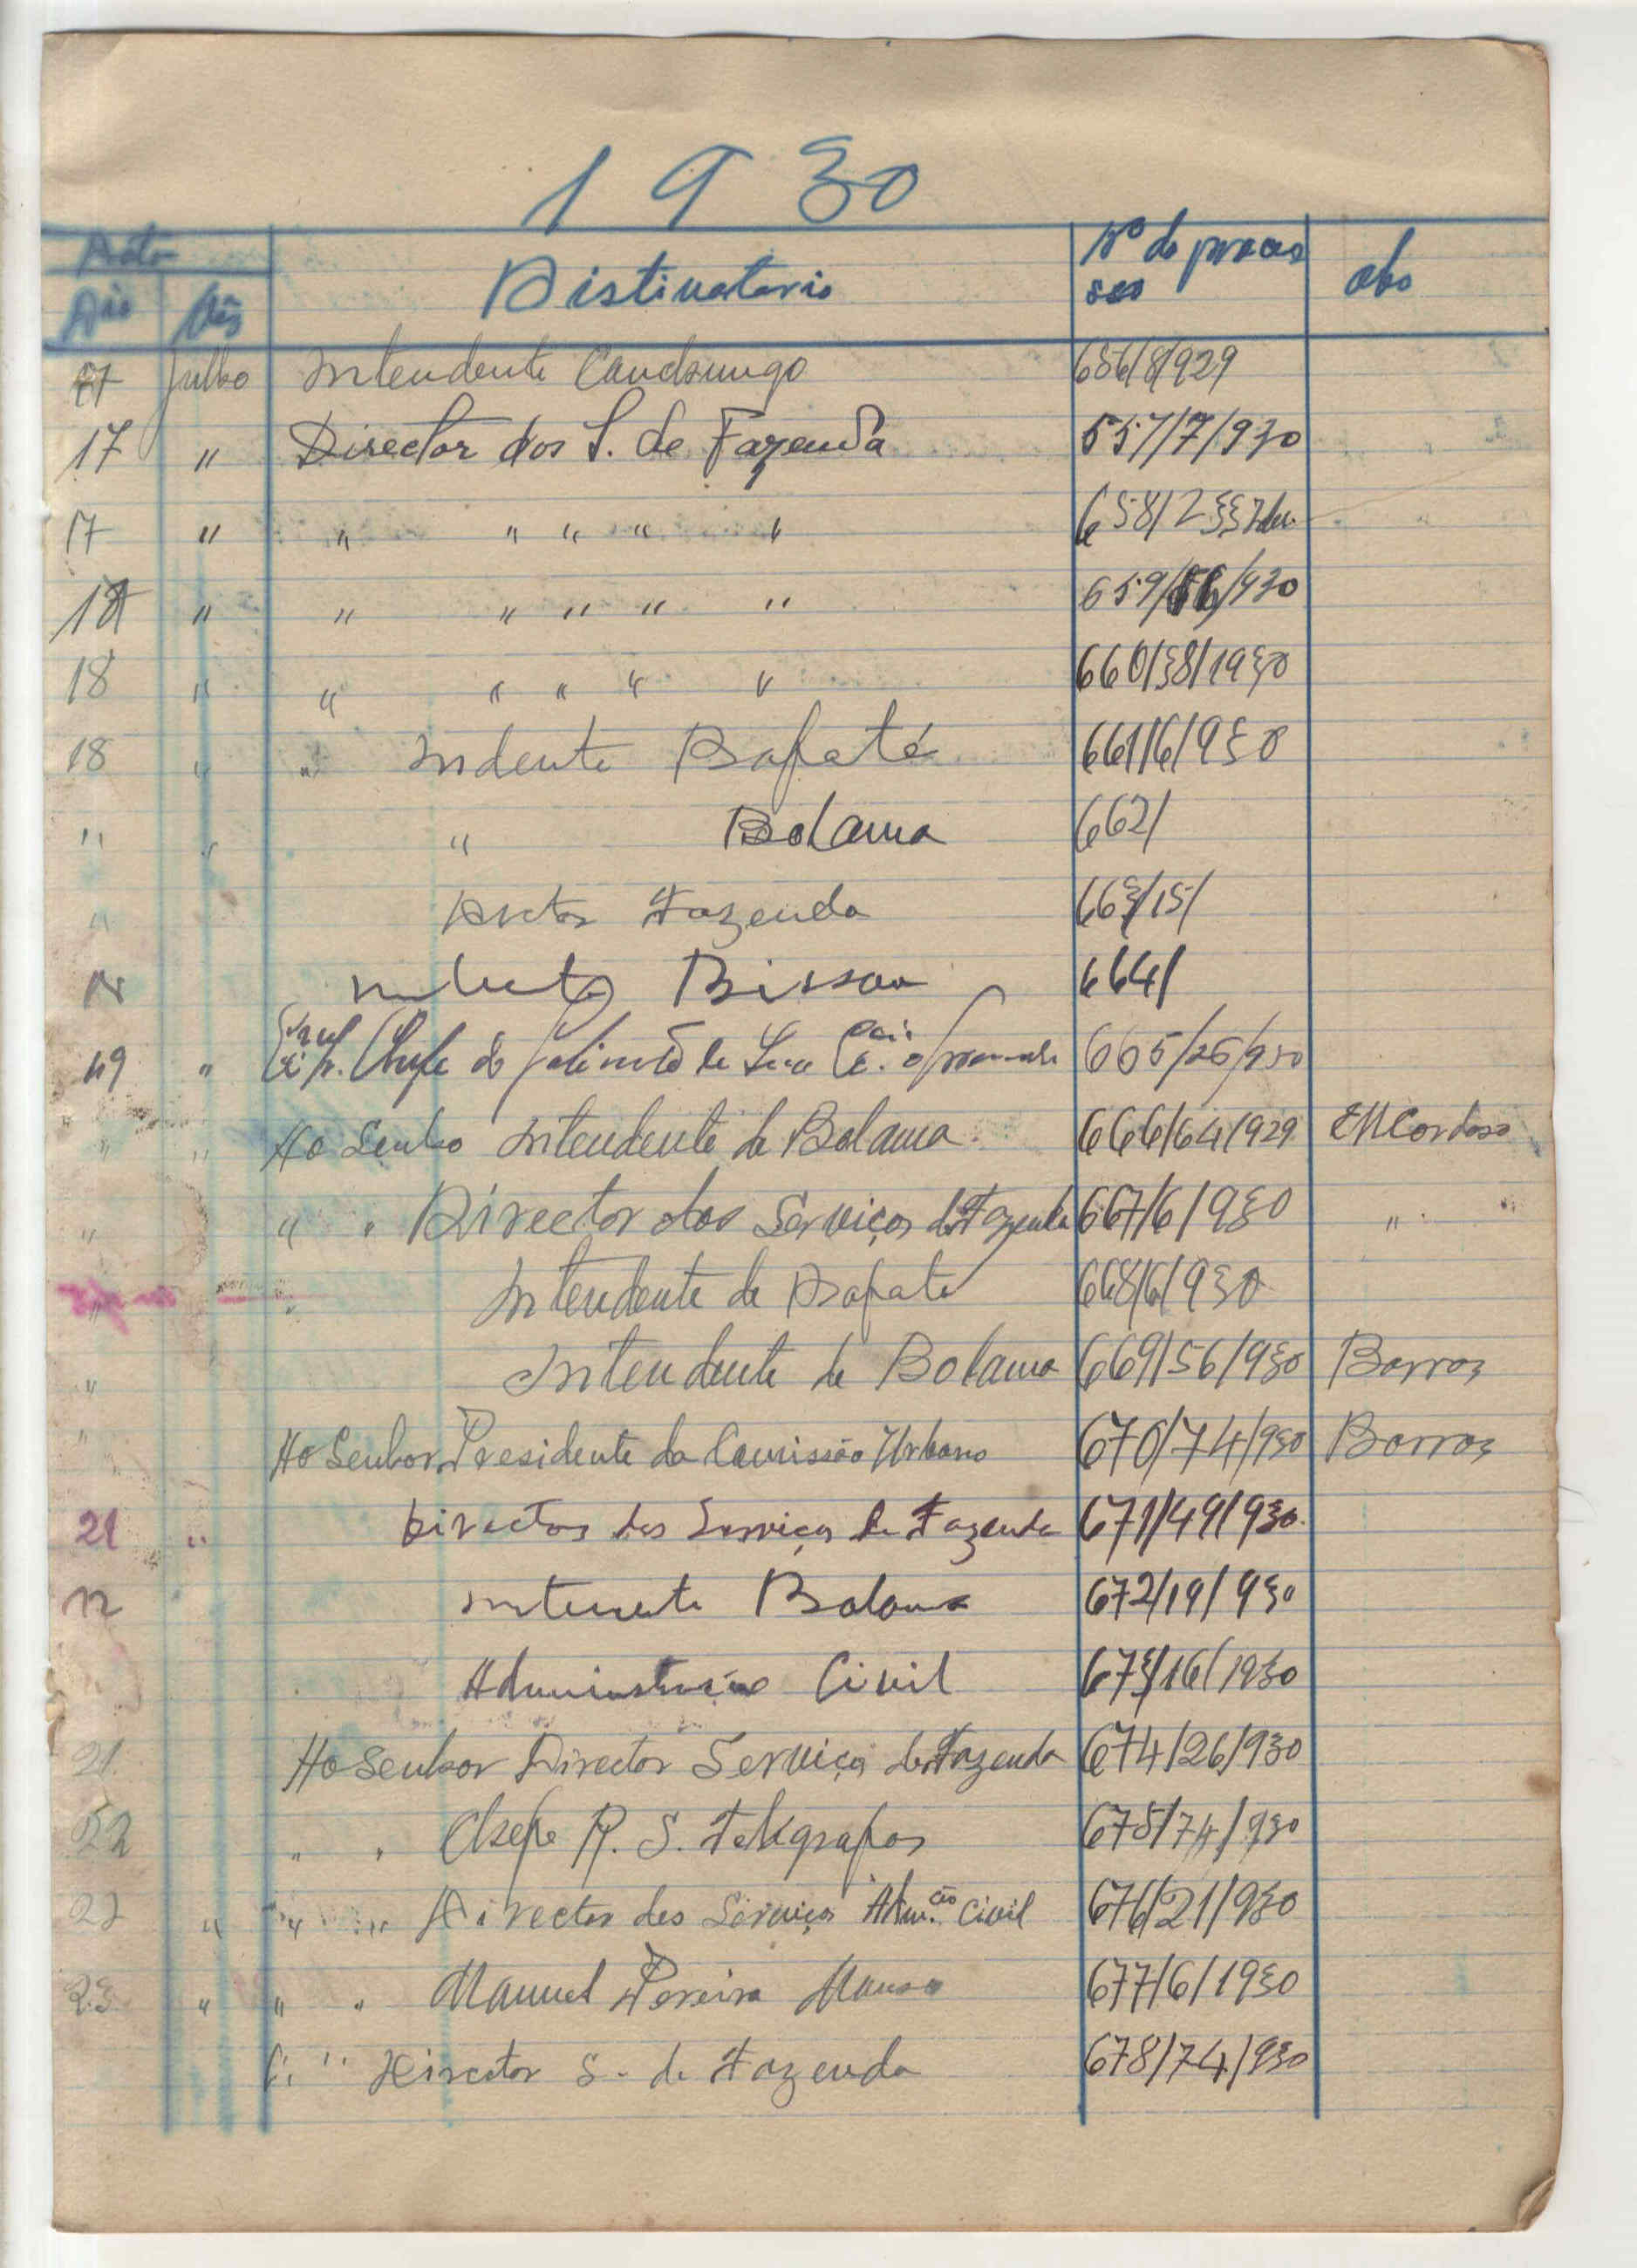 1930
Data
Dia Mês Distinatario Nº do proces
sos obs
17 Julho Intendente Canchungo 656/8/929
17 " Director dos S. de Fazenda 557/7/930
17 " " " " " " 658/
18 " " " " " " 659/ /930
18 " " " " " " 660/38/1930
18 " " Indente Bafatá 661/6/930
" " " Bolama 662/
" Fazenda 663/15/
Bissau 664/
19 " Chefe do de Sua 665/26/930
" " Ao Senho Intendente de Bolama 666/64/929 Cardoso
" " " Director dos Serviços de Fazenda 667/6/930 "
" " Intendente de Bafata 668/6/930
" Intendente de Bolama 669/56/930 Barros
" Ao Senhor Presidente da Comissão Urbano 670/74/930 Barros
21 " Director dos Serviços de Fazenda 671/49/930
Bolama 672/19/930
Administração Civil 673/16/1930
21 Ao Senhor Director Serviços de Fazenda 674/26/930
22 " " Chefe R. S. Telegrafos 675/74/930
22 " " " Director dos Serviços Adm.ção Civil 676/21/930
23 " " " Manuel Pereira 677/6/1930
" " Director S. de Fazenda 678/74/930